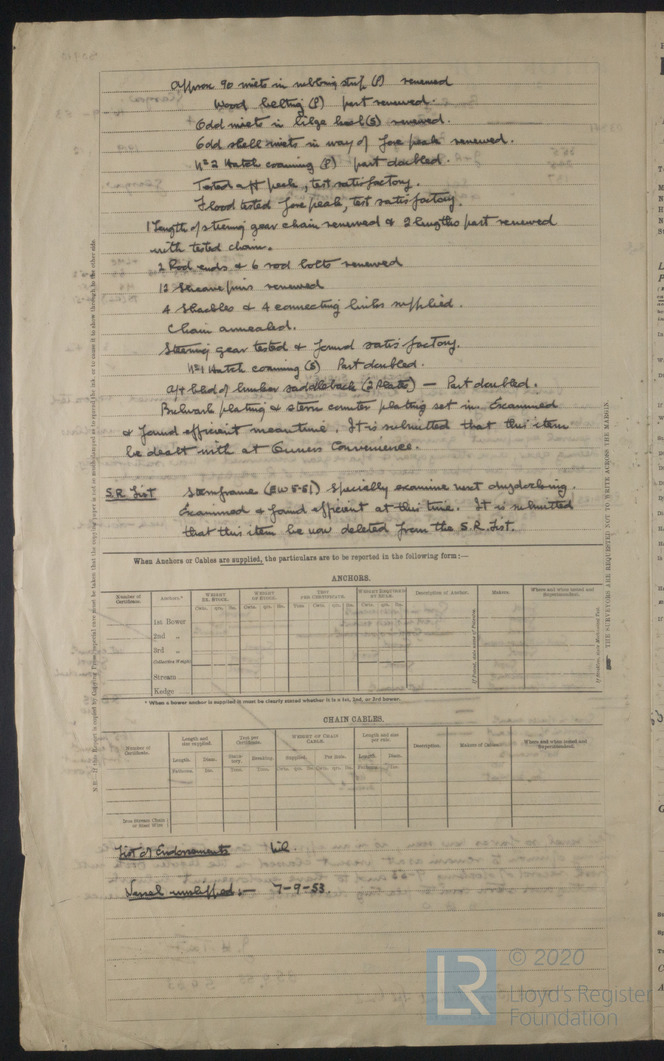 Approx 90 rivets in rubbing strip (P) renewed
Wood belting (P) part renewed.
Odd rivets in bilge keel (S) renewed.
Odd shell rivets in way of fore peak renewed.
Nº 2 Hatch coaming (P) part doubled.
Tested aft peak, test satisfactory.
Flood tested fore peak, test satisfactory.
1 Length of steering gear chain renewed & 2 lengths part renewed
with tested chain.
2 Rod ends & 6 rod bolts renewed
12 Sheave pins renewed
4 Shackles & 4 connecting links supplied.
Chain annealed.
Steering gear tested & found satisfactory.
Nº 1 Hatch coaming (S) Part doubled.
Aft end of bunker saddleback (2 Plates) — Part doubled.
Bulwark plating & stern counter plating set in. Examined
& found efficient meantime. It is submitted that this item
be dealt with at Owners Convenience.
S.R. List Sternframe (EW 5-51) Specially examine next drydocking.
Examined & found efficient at this time. It is submitted
that this item be now deleted from the S.R. List.
When Anchors or Cables are supplied, the particulars are to be reported in the following form:—
ANCHORS.
Number of Certificate. Anchors.* WEIGHT EX. STOCK. WEIGHT OF STOCK. TEST PER CERTIFICATE. WEIGHT REQUIRED BY RULE. Description of Anchor. Makers. Where and when tested and Superintendent.
Cwts. qrs. lbs. Cwts. qrs. lbs. Tons. Cwt. qrs. lbs. Cwts. qrs. lbs.
1st Bower
2nd „
3rd „
Collective Weight
Stream
Kedge
* When a bower anchor is supplied it must be clearly stated whether it is a 1st, 2nd, or 3rd bower.
CHAIN CABLES.
Number of Certificate. Length and size supplied. Test per Certificate. WEIGHT OF CHAIN CABLE. Length and size per rule. Description. Makers of Cables. Where and when tested and Superintendent.
Length. Diam. Statutory. Breaking. Supplied. Per Rule. Length. Diam.
Fathoms. Ins. Tons. Tons. Cwts. qrs. lbs. Cwts. qrs. lbs. Fathoms. Ins.
Iron Stream Chain or Steel Wire
List of Endorsements Nil.
Vessel unslipped :— 7-9-53
THE SURVEYORS ARE REQUESTED NOT TO WRITE ACROSS THE MARGIN.
LR
© 2020
Lloyd's Register
Foundation